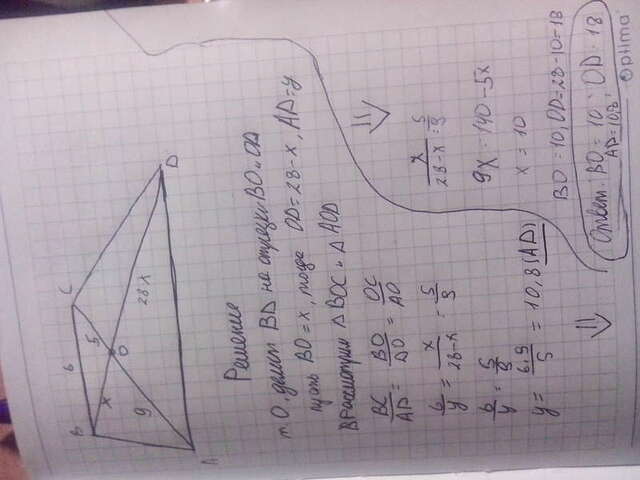 B
6
C
x
5
O
9
28-x
A
D
Решение
т. O делит BD на отрезки BO и OD
пусть BO = x, тогда OD = 28-x, AD = y
Рассмотрим Δ BOC и Δ AOD
BC/AD = BO/DO = OC/AO
6/y = x/28-x = 5/9
6/y = 5/9
y = 6.9/5 = 10,8 (AD)
x/28-x = 5/9
9x = 140 - 5x
x = 10
BO = 10, OD = 28-10 = 18
Ответ: BO = 10; OD = 18
AD = 10,8
Optima